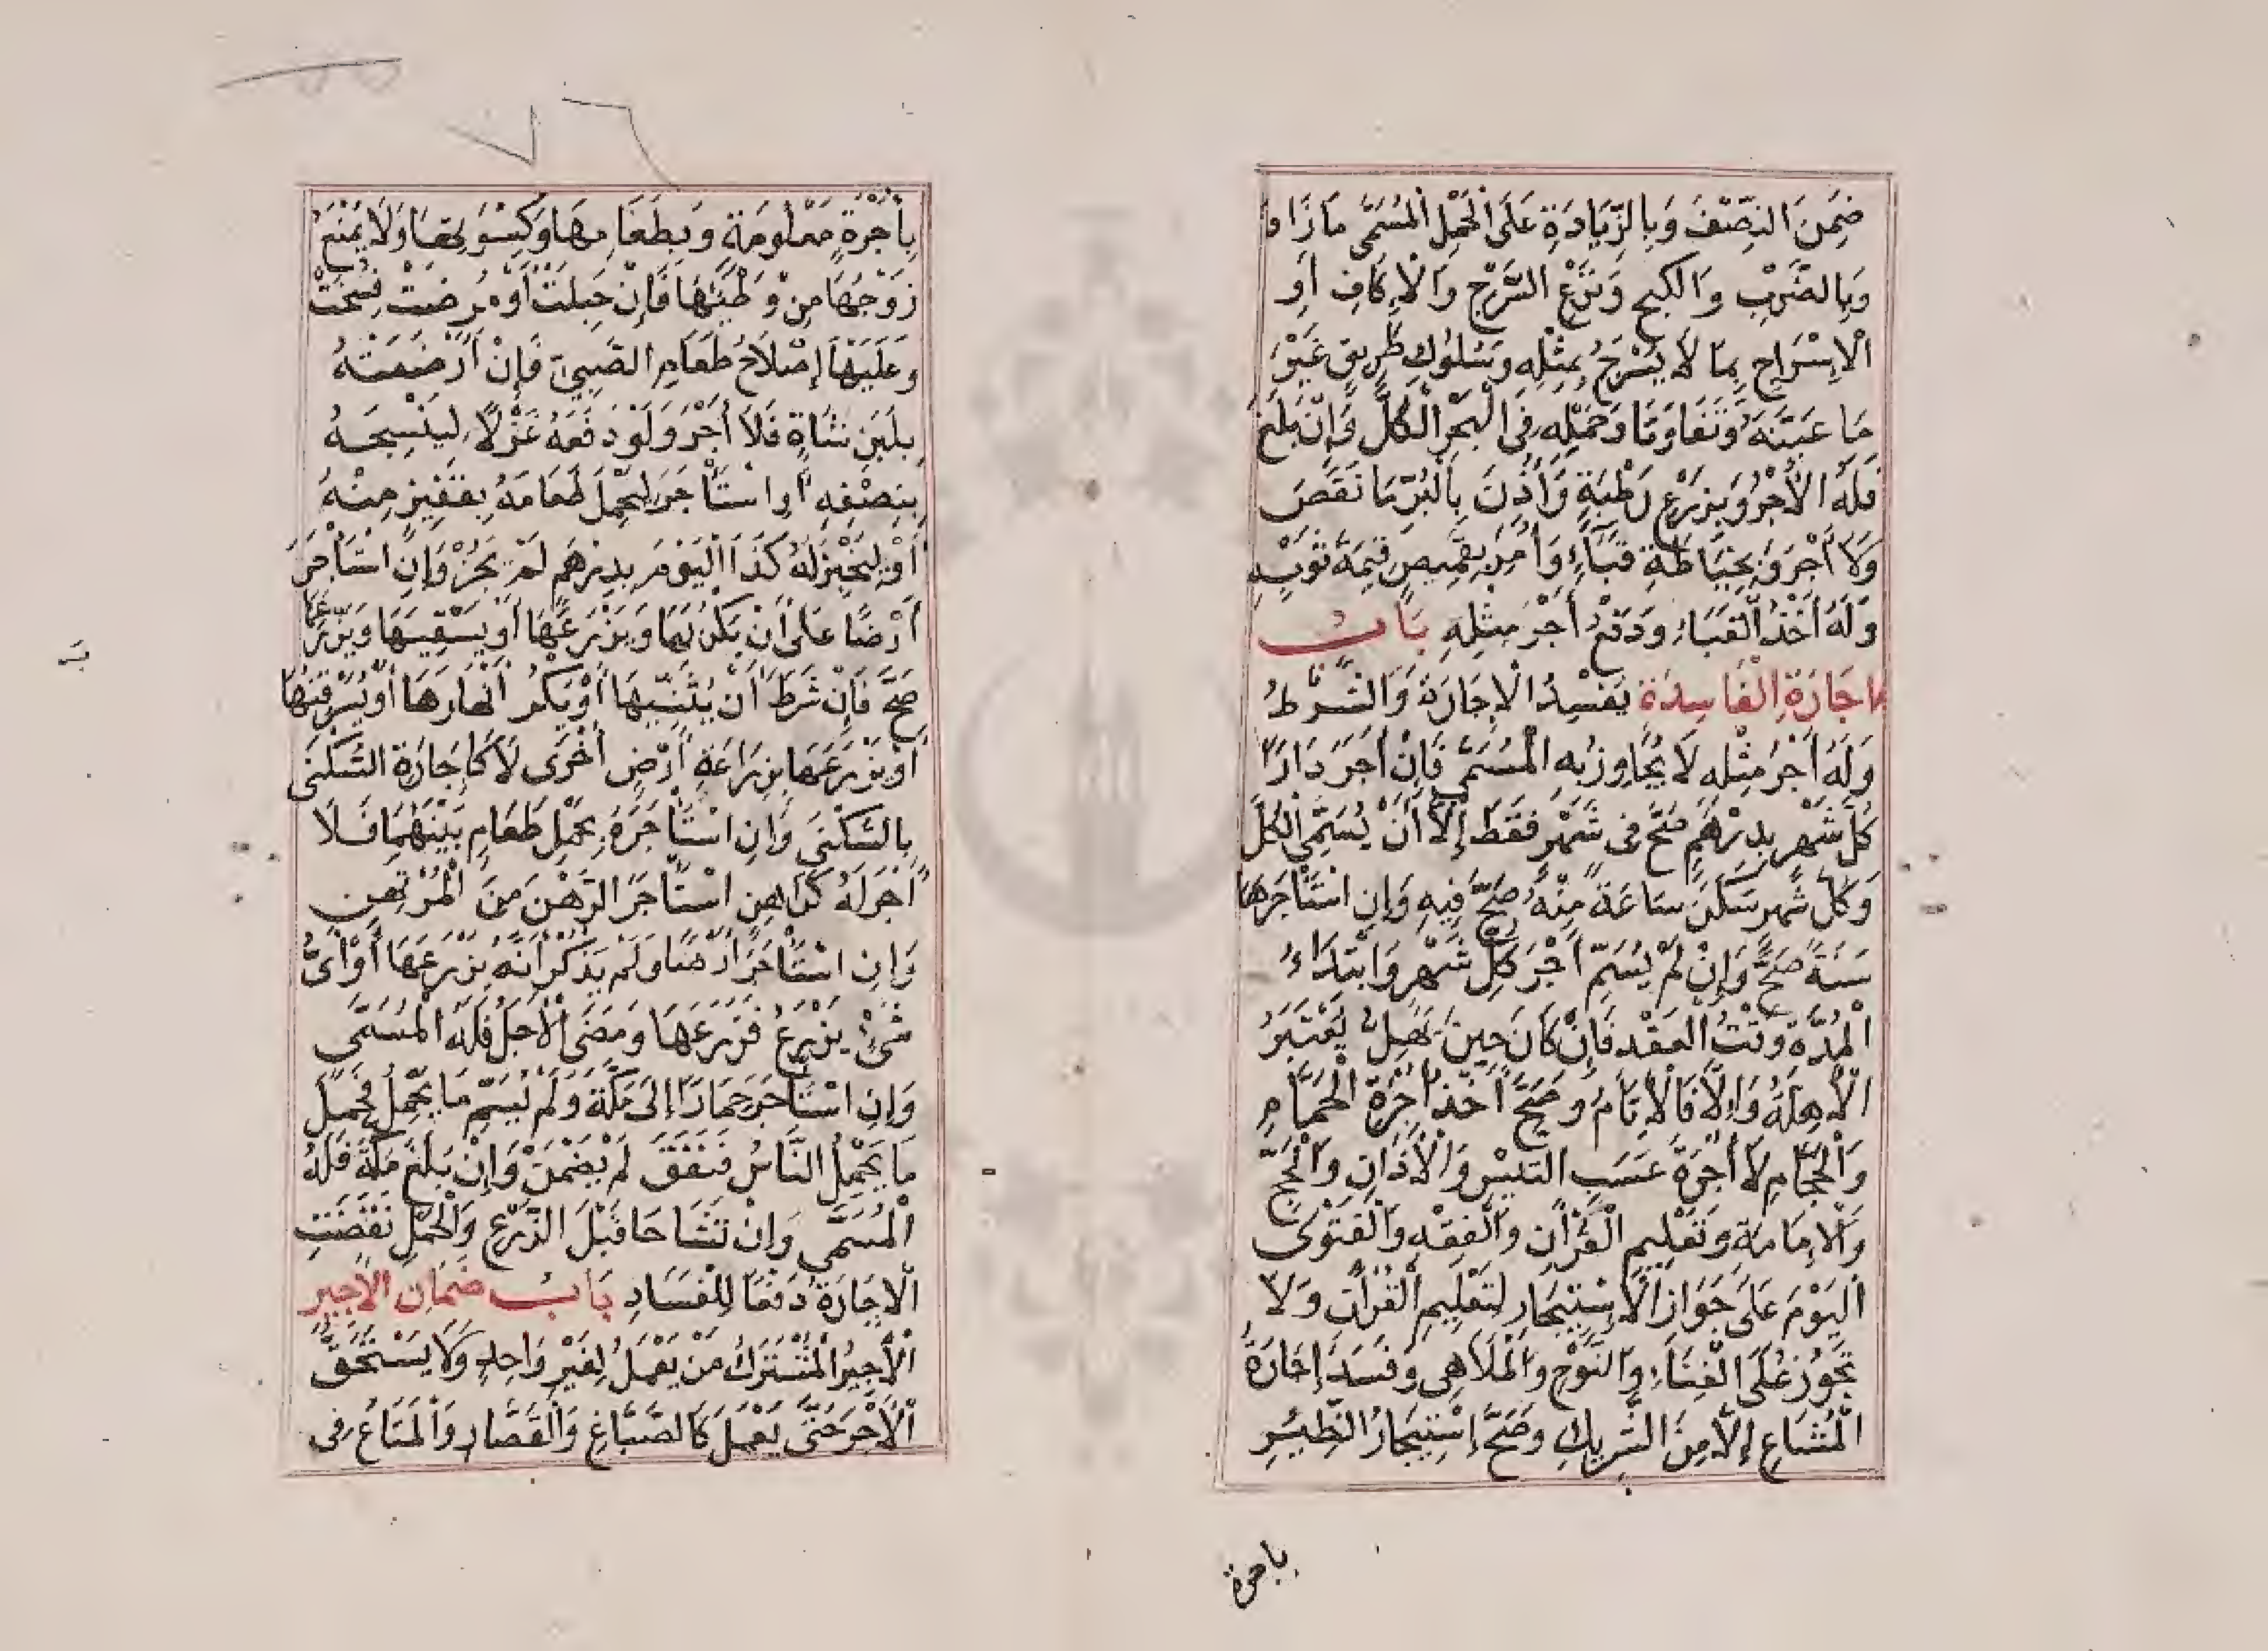 ضَمِنَ النِّصْفَ وَبِالزِّيَادَةِ عَلَى الْحَمْلِ الْمُسَمَّى مَا زَادَ
وَبِالضَّرْبِ وَالْكَبْحِ وَنَزْعِ السَّرْجِ وَالْاِكَافِ أَوِ
الْاِسْرَاجِ بِمَا لَا يُسْرَجُ بِمِثْلِهِ وَسُلُوكِ طَرِيقٍ غَيْرَ
مَا عَيَّنَهُ وَتَفَاوَتَا وَحَمْلِهِ فِي الْبَحْرِ الْكُلَّ وَإِنْ بَلَغَ
فَلَهُ الْأَجْرُ وَبِزَرْعِ رَطْبَةٍ وَأُذِنَ بِالْبُرِّ مَا نَقَصَ
وَلَا أَجْرَ وَبِخِيَاطَةِ قَبَاءٍ وَأُمِرَ بِقَمِيصٍ قِيمَةَ ثَوْبِهِ
وَلَهُ أَخْذُ الْقَبَاءِ وَدَفْعُ أَجْرِ مِثْلِهِ بَابُ
الاجَارَةِ الْفَاسِدَةِ يُفْسِدُ الْاِجَارَةَ وَالشَّرْطُ
وَلَهُ أَجْرُ مِثْلِهِ لَا يُجَاوِزُ بِهِ الْمُسَمَّى فَإِنْ أَجَرَ دَارًا
كُلَّ شَهْرٍ بِدِرْهَمٍ صَحَّ فِي شَهْرٍ فَقَطْ إِلَّا أَنْ يُسَمِّيَ الْكُلَّ
وَكُلُّ شَهْرٍ سَكَنَ سَاعَةً مِنْهُ صَحَّ فِيهِ وَإِنِ اسْتَأْجَرَهَا
سَنَةً صَحَّ وَإِنْ لَمْ يُسَمِّ أَجْرَ كُلِّ شَهْرٍ وَابْتِدَاءُ
الْمُدَّةِ وَقْتُ الْعَقْدِ فَإِنْ كَانَ حِينَ يُهَلُّ يُعْتَبَرُ
الْأَهِلَّةُ وَإِلَّا فَالْأَيَّامُ وَصَحَّ أَخْذُ أُجْرَةِ الْحَمَّامِ
وَالْحَجَّامِ لَا أُجْرَةُ عَسَبِ التَّيْسِ وَالْأَذَانِ وَالْحَجِّ
وَالْاِمَامَةِ وَتَعْلِيمِ الْقُرْآنِ وَالْفِقْهِ وَالْفَتْوَى
الْيَوْمَ عَلَى جَوَازِ الْاِسْتِيجَارِ لِتَعْلِيمِ الْقُرْآنِ وَلَا
تَجُوزُ عَلَى الْغِنَاءِ وَالنَّوْحِ وَالْمَلَاهِي وَفَسَدَ إِجَارَةُ
الْمُشَاعِ إِلَّا مِنَ الشَّرِيكِ وَصَحَّ إِسْتِيجَارُ الظِّئْرِ
باجرة
بِأُجْرَةٍ مَعْلُومَةٍ وَبِطَعَامِهَا وَكِسْوَتِهَا وَلَا يَمْنَعُ
زَوْجَهَا مِنْ وَطْئِهَا فَإِنْ حَبِلَتْ أَوْ مَرِضَتْ فُسِخَتْ
وَعَلَيْهَا إِصْلَاحُ طَعَامِ الصَّبِيِّ فَإِنْ أَرْضَعَتْهُ
بِلَبَنِ شَاةٍ فَلَا أَجْرَ وَلَوْ دَفَعَهُ غَزْلًا لِيَنْسِجَهُ
بِنِصْفِهِ أَوِ اسْتَأْجَرَ لِحَمْلِ طَعَامِهِ بِقَفِيزٍ مِنْهُ
أَوْ لِيَخْبِزَ لَهُ كَذَا الْيَوْمَ بِدِرْهَمٍ لَمْ يَجُزْ وَإِنِ اسْتَأْجَرَ
أَرْضًا عَلَى أَنْ يَكْرُبَهَا وَيَزْرَعَهَا أَوْ يَسْقِيَهَا وَيَزْرَعَهَا
صَحَّ فَإِنْ شَرَطَ أَنْ يُثَنِّيَهَا أَوْ يَكْرَ أَنْهَارَهَا أَوْ يُسَرْقِنَهَا
أَوْ يَزْرَعَهَا بِزِرَاعَةِ أَرْضٍ أُخْرَى لَا كَإِجَارَةِ السُّكْنَى
بِالسُّكْنَى وَإِنِ اسْتَأْجَرَهُ بِحَمْلِ طَعَامٍ بَيْنَهُمَا فَلَا
أَجْرَ لَهُ كَرَاهِنٍ اسْتَأْجَرَ الرَّهْنَ مِنَ الْمُرْتَهِنِ
وَإِنِ اسْتَأْجَرَ أَرْضًا وَلَمْ يَذْكُرْ أَنَّهُ يَزْرَعُهَا أَوْ أَيَّ
شَيْءٍ يَزْرَعُ فَزَرَعَهَا وَمَضَى الْأَجَلُ فَلَهُ الْمُسَمَّى
وَإِنِ اسْتَأْجَرَ حِمَارًا إِلَى مَكَّةَ وَلَمْ يُسَمِّ مَا يَحْمِلُ فَحَمَلَ
مَا يَحْمِلُ النَّاسُ فَنَفَقَ لَمْ يَضْمَنْ وَإِنْ بَلَغَ مَكَّةَ فَلَهُ
الْمُسَمَّى وَإِنْ تَشَاحَا قَبْلَ الزَّرْعِ وَالْحَمْلِ نُقِضَتِ
الْاِجَارَةُ دَفْعًا لِلْفَسَادِ بَابُ ضَمَانِ الْأَجِيرِ
الْأَجِيرُ الْمُشْتَرَكُ مَنْ يَعْمَلُ لِغَيْرِ وَاحِدٍ وَلَا يَسْتَحِقُّ
الْأَجْرَ حَتَّى يَعْمَلَ كَالصَّبَّاغِ وَالْقَصَّارِ وَالْمَتَاعُ فِي